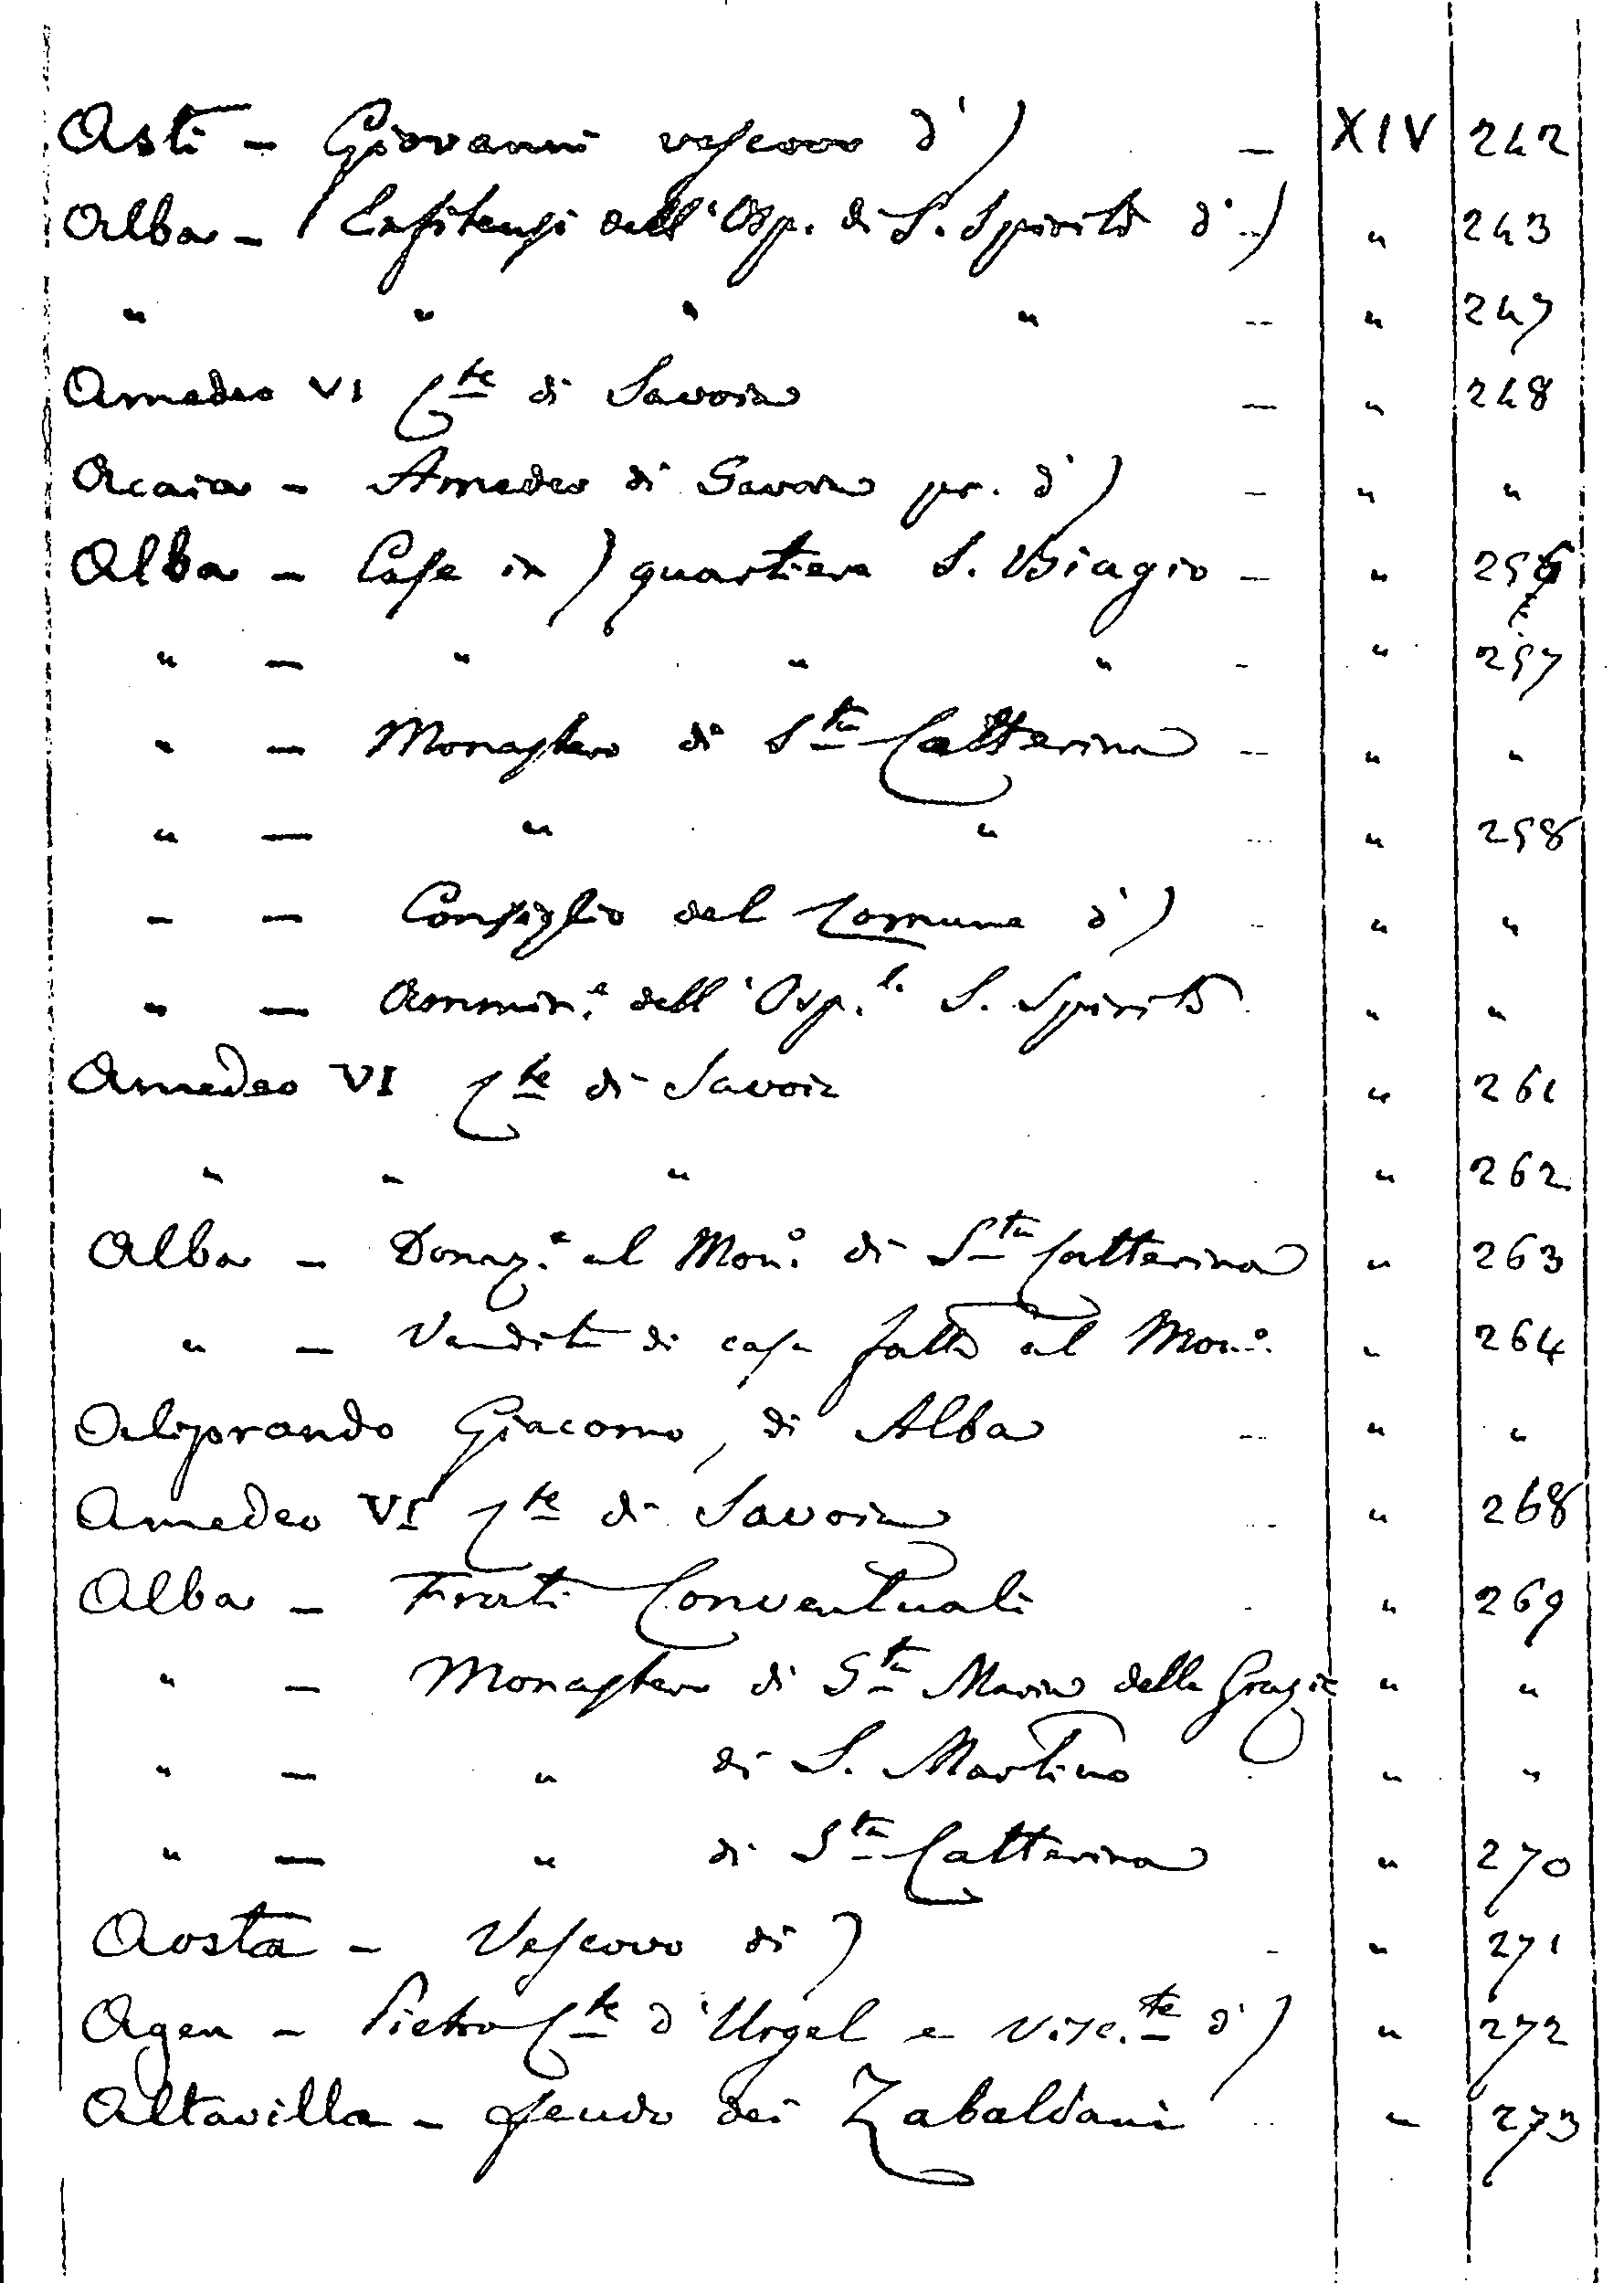 Asti - Giovanni vescovo d') - XIV 242
Alba - dell'Osp. di S. Spirito d' -) " 243
" " " " - " 247
Amedeo VI Cte di Savoia - " 248
Acaia - Amedeo di Savoia pr. d') - " "
Alba - Case in) quartiere S. Biagio - " 256
" - " " " - " 257
" - Monastero di Sta Catterina - " "
" - " " - " 258
" - Consiglio del Comune d') - " "
" - Ammin.e dell'Osp.l. S. Spirito " "
Amedeo VI Cte di Savoia " 261
" " " " 262
Alba - Donaz.e al Mon.o di Sta Catterina " 263
" - Vendita di casa fatta al Mon.o " 264
Aliprando Giacomo, di Alba - " "
Amedeo VI Cte di Savoia - " 268
Alba - Frati Conventuali - " 269
" - Monastero di Sta Maria delle Grazie " "
" - " di S. Martino " "
" - " di Sta Catterina " 270
Aosta - Vescovo di) - " 271
Agen - Pietro Cte d'Urgel e Visc.te d') " 272
Altavilla - feudo dei Zabaldani - " 273